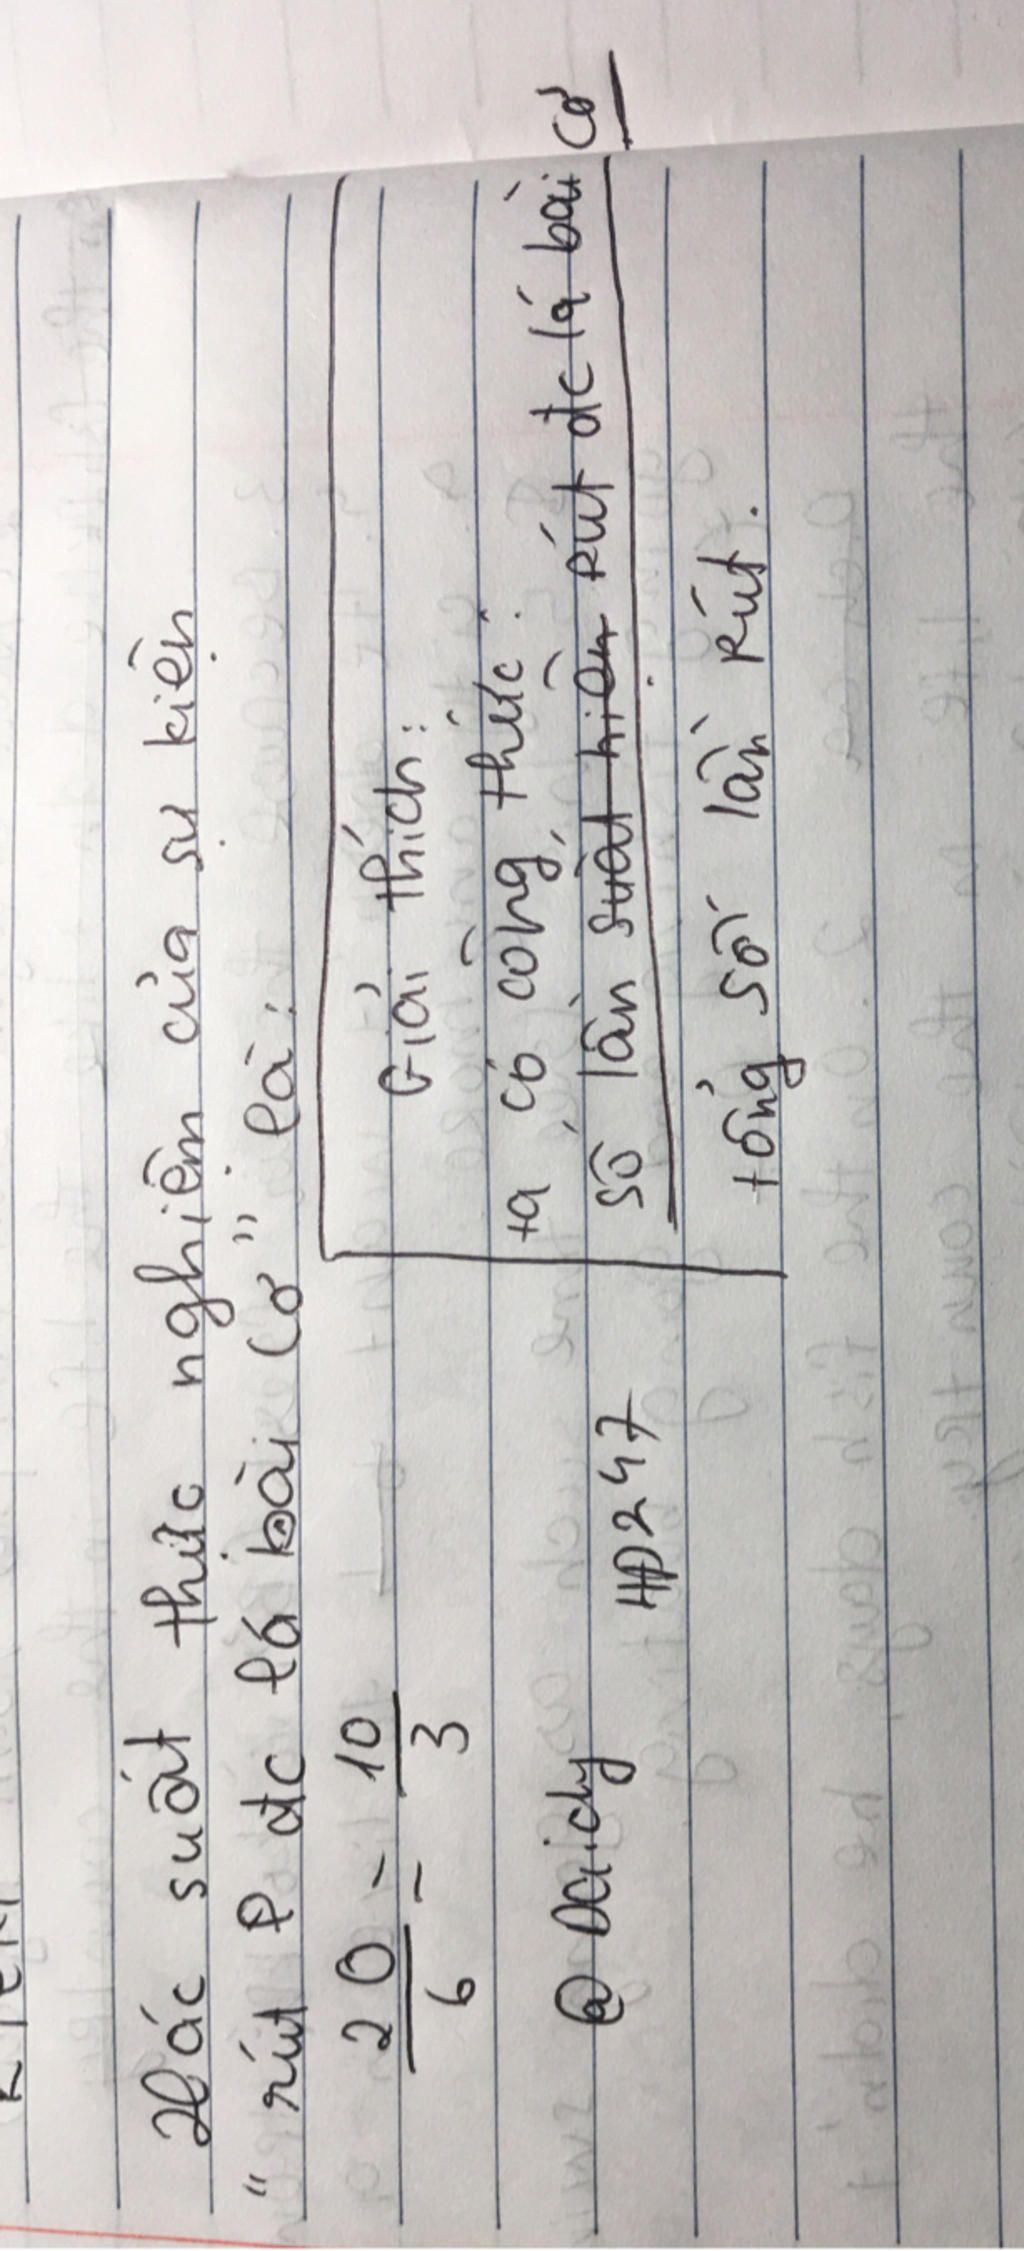 Xác suất thực nghiệm của sự kiện
" rút P đc lá bài Cơ" là:
20/6 = 10/3
Giải thích:
ta có công thức:
số lần suất hiện rút đc lá bài cơ
tổng số lần rút.
@ Daichy HD247